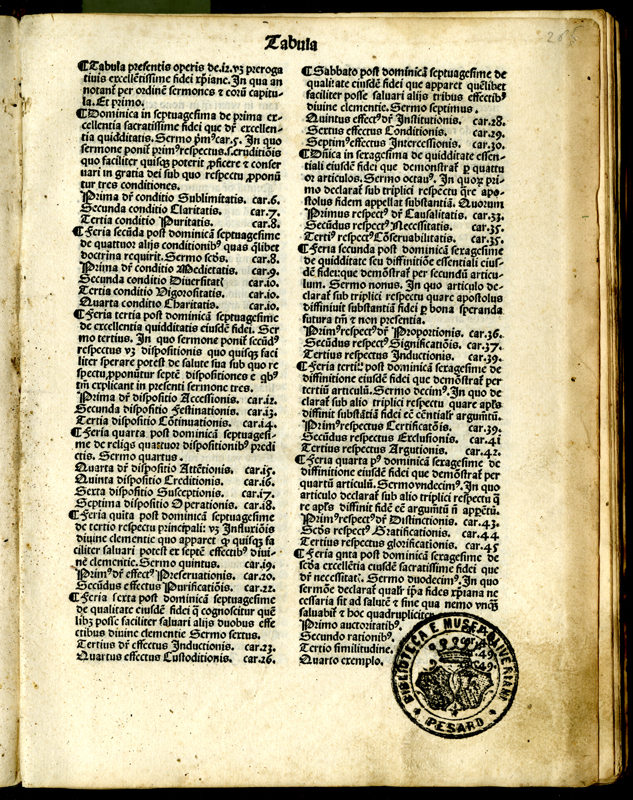 Tabula
¶Tabula presentis operis de.12.vꝫ preroga
tiuis excellētissime fidei xp̄iane. In qua an
notant̄ per ordinē sermones ⁊ eorū capitu
la. Et primo.
¶Dominica in septuagesima de prima ex
cellentia sacratissime fidei que dr̄ excellen-
tia quidditatis. Sermo pm᷒ car.5. In quo
sermone ponit̄ prim᷒ respectus.s.eruditiōis
quo faciliter quisqꝫ poterit ꝓficere ⁊ conser
uari in gratia dei sub quo respectu ꝓponū
tur tres conditiones.
Prima dr̄ conditio Sublimitatis. car.6.
Secunda conditio Claritatis. car.7.
Tertia conditio Puritatis. car.8.
¶Feria secūda post dominicā septuagesime
de quattuor alijs conditionib᷒ quas q̄libet
doctrina requirit. Sermo scd̄s. car.8.
Prima dr̄ conditio Medietatis. car.9.
Secunda conditio Diuersitatꝭ car.10.
Tertia conditio Vigorositatis. car.10.
Quarta conditio Charitatis. car.10.
¶Feria tertia post dominicā septuagesime
de excellentia quidditatis eiusdē fidei. Ser
mo tertius. In quo sermone ponit̄ secūd᷒
respectus vꝫ dispositionis quo quisqꝫ faci
liter sperare potest de salute sua sub quo re
spectu,ꝓponūtur septē dispositiones e qb᷒
tm̄ explicant̄ in presenti sermone tres.
Prima dr̄ dispositio Accessionis. car.12.
Secunda dispositio Festinationis. car.13.
Tertia dispositio Cōtinuationis. car.14.
¶Feria quarta post dominicā septuagesi-
me de reliqs quattuor dispositionib᷒ predi
ctis. Sermo quartus.
Quarta dr̄ dispositio Attētionis. car.15.
Quinta dispositio Creditionis. car.16.
Sexta dispositio Susceptionis. car.17.
Septima dispositio Operationis. car.18.
¶Feria quīta post dominicā septuagesime
de tertio respectu principali: vꝫ Influxiōis
diuine clementie quo apparet ꝙ quisqꝫ fa
ciliter saluari potest ex septē effectib᷒ diui-
ne clementie. Sermo quintus. car.19.
Prim᷒ dr̄ effect᷒ Preseruationis. car.20.
Secūdus effectus Purificatiōis. car.22.
¶Feria sexta post dominicā septuagesime
de qualitate eiusdē fidei q̄ cognoscitur quē
libꝫ posse faciliter saluari alijs duobus effe
ctibus diuine clementie Sermo sextus.
Tertius dr̄ effectus Inductionis. car.23.
Quartus effectus Custoditionis. car.26.
¶Sabbato post dominicā septuagesime de
qualitate eiusdē fidei que apparet quēlibet
faciliter posse saluari alijs tribus effectib᷒
diuine clementie. Sermo septimus.
Quintus effect᷒ dr̄ Institutionis. car.28.
Sextus effectus Conditionis. car.29.
Septim᷒ effectus Intercessionis. car.30.
¶Dn̄ica in sexagesima de quidditate essen-
tiali eiusdē fidei que demōstrat̄ ꝑ quattu
or articulos. Sermo octau᷒. In quoꝝ pri-
mo declarat̄ sub triplici respectu q̄re apo-
stolus fidem appellat substantiā. Quorum
Primus respect᷒ dr̄ Causalitatis. car.33.
Secūdus respect᷒ Necessitatis. car.35.
Terti᷒ respect᷒ Cōseruabilitatis. car.35.
¶Feria secunda post dominicā sexagesime
de quidditate seu diffinitiōe essentiali eius-
dē fidei:que demōstrat̄ per secundū articu-
lum. Sermo nonus. In quo articulo de-
clarat̄ sub triplici respectu quare apostolus
diffiniuit substantiā fidei ꝑ bona speranda
futura tm̄ ⁊ non presentia.
Prim᷒ respect᷒ dr̄ Proportionis. car.36.
Secūdus respectus Significatiōis. car.37.
Tertius respectus Inductionis. car.39.
¶Feria tertia post dominicā sexagesime de
diffinitione eiusdē fidei que demōstrat̄ per
tertiū articulū. Sermo decim᷒. In quo de
clarat̄ sub alio triplici respectu quare apl̄s
diffinit substātiā fidei eē cēntialr̄ argumētū.
Prim᷒ respectus Certificatōis. car.39.
Secūdus respectus Exclusionis. car.41
Tertius respectus Argutionis. car.42.
¶Feria quarta p᷒ dominicā sexagesime de
diffinitione eiusdē fidei que demōstrat̄ per
quartū articulū. Sermo vndecim᷒. In quo
articulo declarat̄ sub alio triplici respectu q̄
re apl̄s diffinit fidē eē argumētū nō appētū.
Prim᷒ respect᷒ dr̄ Distinctionis. car.43.
Scd̄s respect᷒ Gratificationis. car.44
Tertius respectus glorificationis. car.45
¶Feria qnta post dominicā sexagesime de
scd̄a excellētia eiusdē sacratissime fidei que
dr̄ necessitatꝭ. Sermo duodecim᷒. In quo
sermōe declarat̄ qualr̄ ip̄a fides xp̄iana ne
cessaria sit ad salutē ⁊ sine qua nemo vnqꝫ
saluabit̄ ⁊ hoc quadrupliciter.
Primo auctoritatib᷒.
Secundo rationib᷒. 49.
Tertio similitudine. 49.
Quarto exemplo.
BIBLIOTECA E MUSEI OLIVERIANI
PESARO